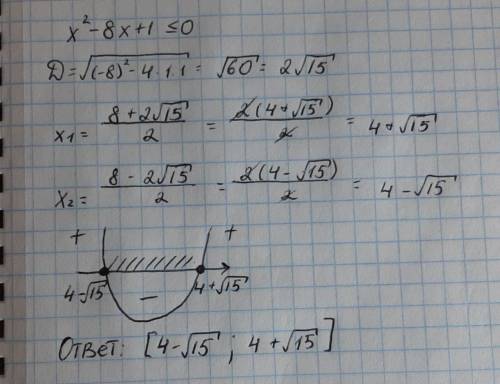 x² - 8x + 1 ≤ 0
D = √((-8)² - 4·1·1) = √60 = 2√15
x₁ = (8 + 2√15)/2 = 2(4 + √15)/2 = 4 + √15
x₂ = (8 - 2√15)/2 = 2(4 - √15)/2 = 4 - √15
+ +
4-√15 − 4+√15
Ответ: [4-√15 ; 4+√15]